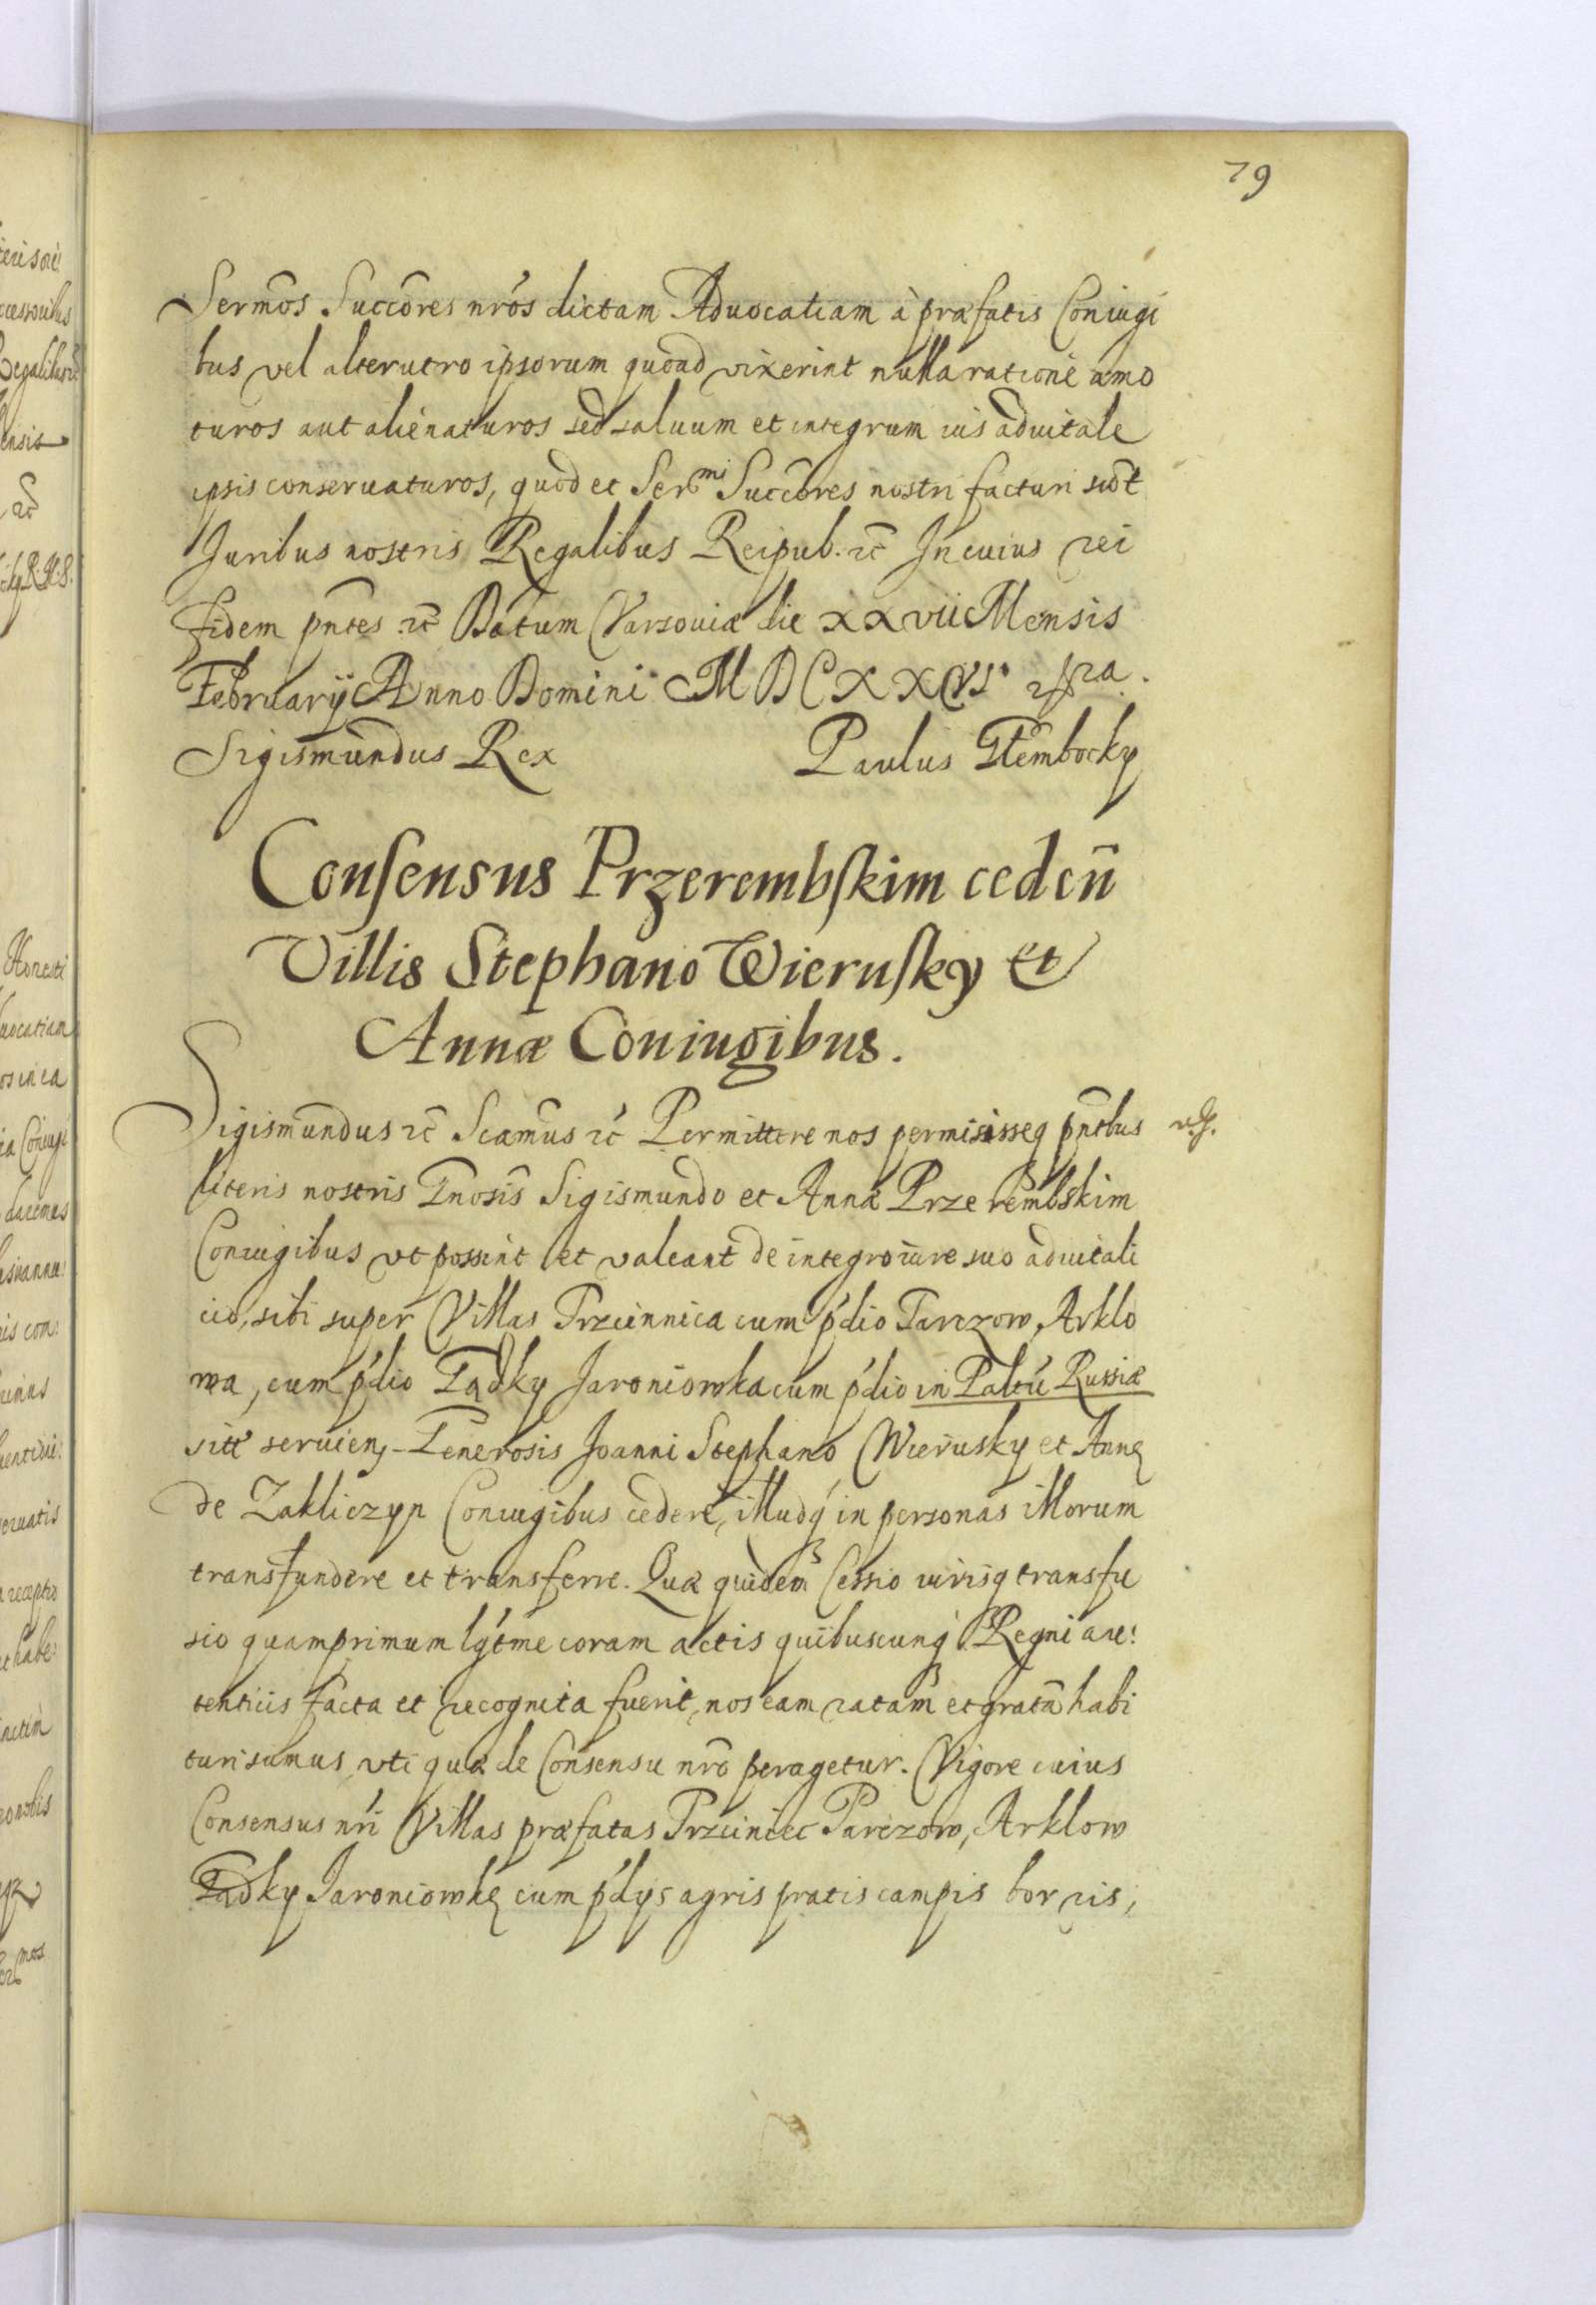 79
Sermōs Succōres nrós dictam Aduocatiam à præfatis Coniugi
bus vel alterutro ipsorum quoad vixerint nulla ratione amo
turos aut alienaturos sed saluum et integrum ius aduitale
ipsis conseruaturos, quod et Ser^mi Succōres nostri facturi sūt
Juribus nostris Regalibus Reipub. ɾc̄ In cuius rei
fidem pn̄tes ɾc̄ Datum Varsouiæ die XXVII Mensis
February Anno Domini MDCXXVI
Sigismundus Rex Paulus Glembocky
Consensus Przerembskim cedēn
Villis Stephano Wierusky et
Annæ Coniugibus.
Sigismundus ɾc̄ Scam̄us ɾc̄ Permittere nos permisisseq pn̄tbus
literis nostris Gnosis Sigismundo et Annæ Przerembskim
Coniugibus vt possint et valeant de integro iure suo aduitali
cio, sibi super Villas Przcinnica cum ṕdio Parczow, Arklo
wa, cum ṕdio Tadky Jaroniowka cum ṕdio in Paltū Russiæ
sitt seruien, Generosis Joanni Stephano Wierusky et Annę
de Zakliczyn Coniugibus cedere, illudq́ in personas illorum
transfundere et transferre. Quæ quidem Cessio iurisq transfu
sio quamprimum lǵtme coram actis quibuscunq́ Regni au:
tenticis facta et recognita fuerit, nos eam ratam et gratā habi
turi sumus, vti quæ de Consensu nrō peragetur. Vigore cuius
Consensus nrī Villas præfatas Przciniec Parczow, Arklow
Tadky Jaroniowkę cum ṕdys agris pratis campis bor ris,